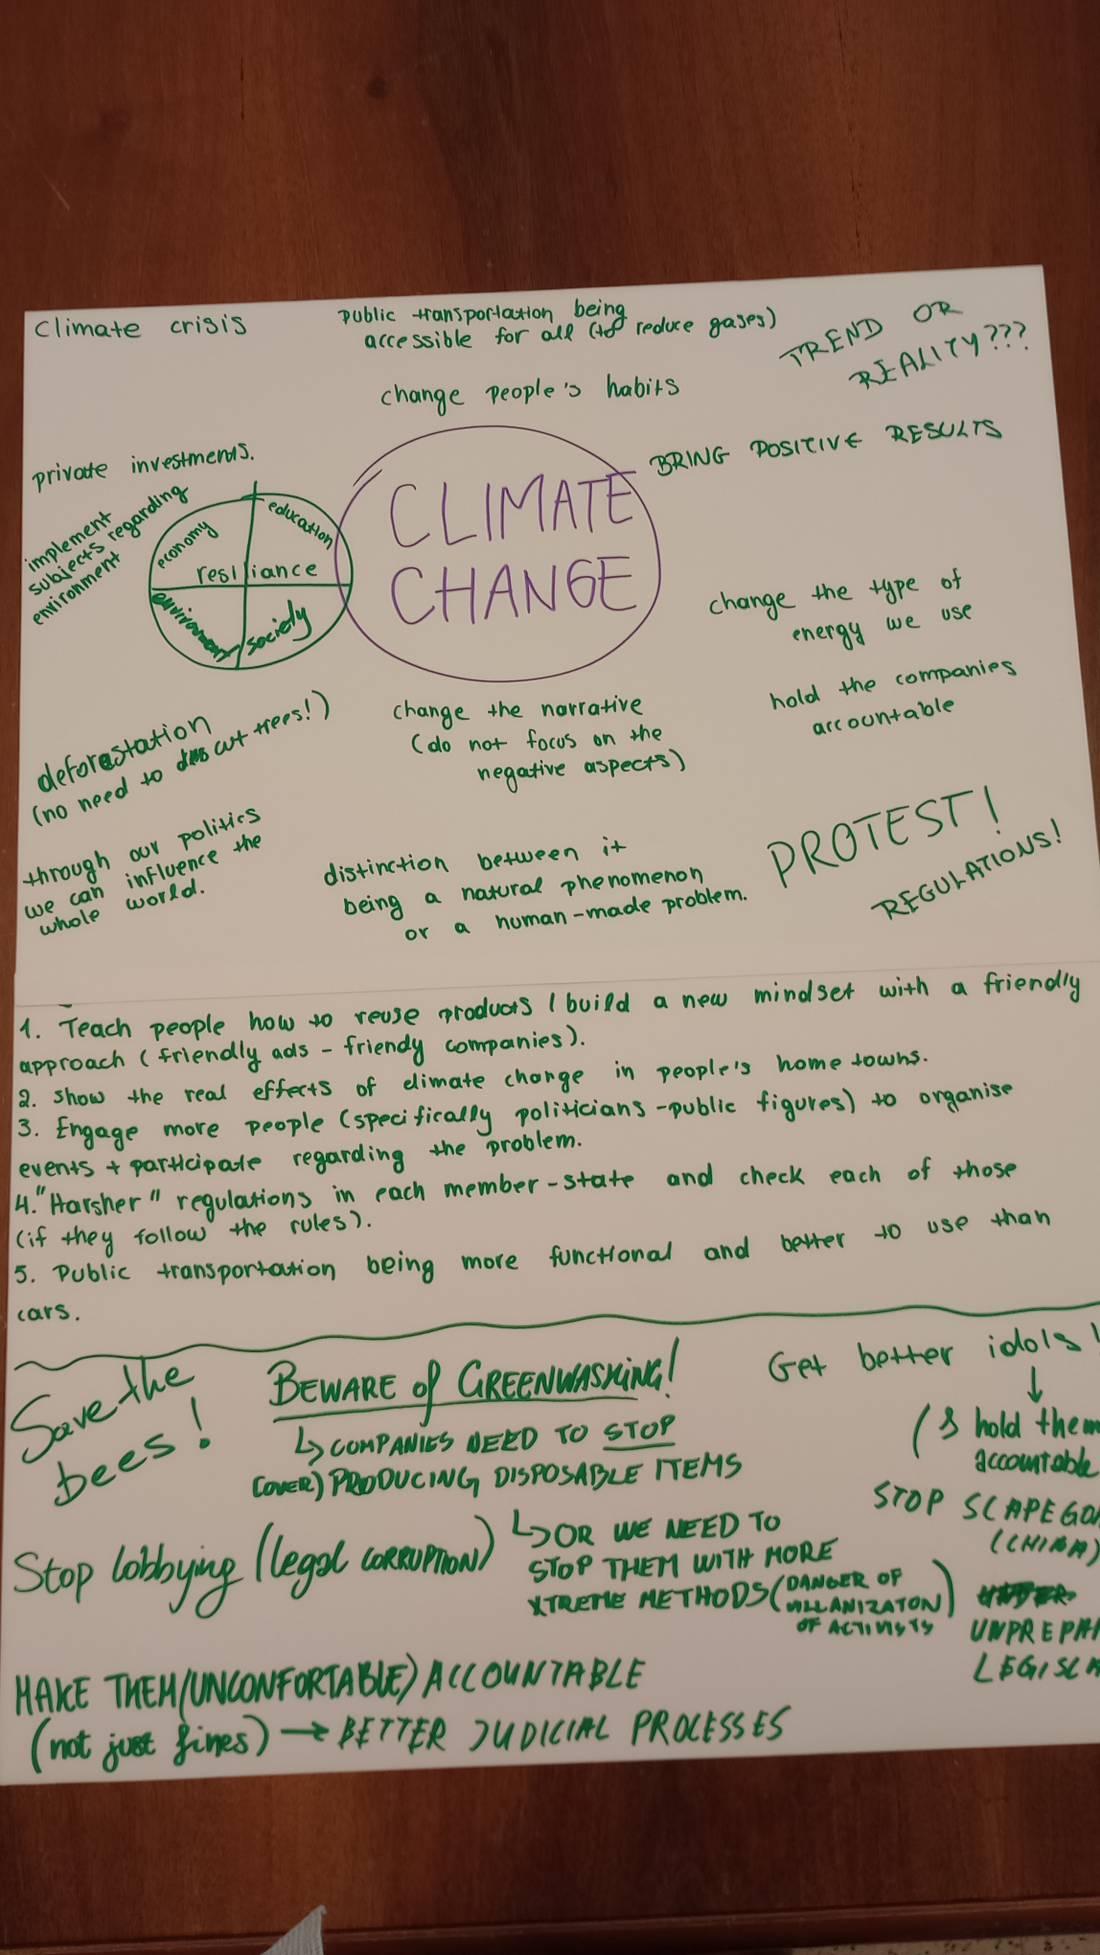 climate crisis
public transportation being
accessible for all (to reduce gases)
TREND OR
REALITY???
change people's habits
BRING POSITIVE RESULTS
private investments.
implement
subjects regarding
environment
economy
education
resiliance
environment
society
CLIMATE
CHANGE
change the type of
energy we use
hold the companies
accountable
deforestation
(no need to cut trees!)
change the narrative
(do not focus on the
negative aspects)
through our politics
we can influence the
whole world.
distinction between it
being a natural phenomenon
or a human-made problem.
PROTEST!
REGULATIONS!
1. Teach people how to reuse products / build a new mindset with a friendly
approach (friendly ads - friendy companies).
2. show the real effects of climate change in people's home towns.
3. Engage more people (specifically politicians - public figures) to organise
events + participate regarding the problem.
4. "Harsher" regulations in each member-state and check each of those
(if they follow the rules).
5. Public transportation being more functional and better to use than
cars.
Save the
bees!
BEWARE of GREENWASHING!
↳ COMPANIES NEED TO STOP
(OVER) PRODUCING DISPOSABLE ITEMS
↳ OR WE NEED TO
STOP THEM WITH MORE
XTREME METHODS (DANGER OF
VILLANIZATON
OF ACTIVISTS)
Get better idols!
↓
(& hold them
accountable
STOP SCAPEGO
(CHINA)
UNPREPA
LEGISLA
Stop lobbying (legal CORRUPTION)
MAKE THEM (UNCONFORTABLE) ACCOUNTABLE
(not just fines) → BETTER JUDICIAL PROCESSES